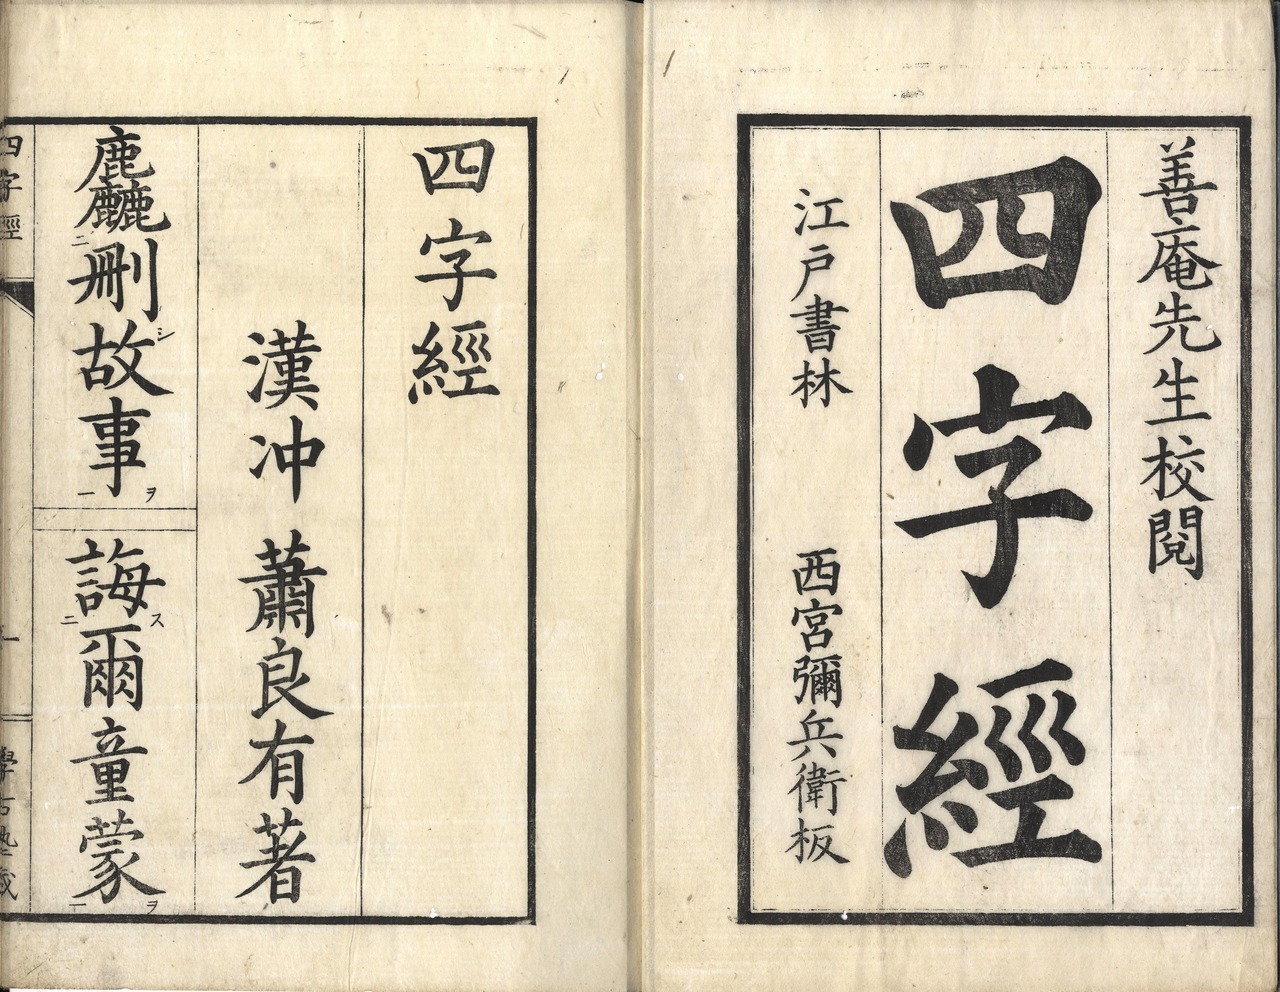 善庵先生校閲
四字經
江戸書林 西宮彌兵衛板
四字經
漢冲 蕭良有著
麤刪故事 誨爾童蒙
四字經